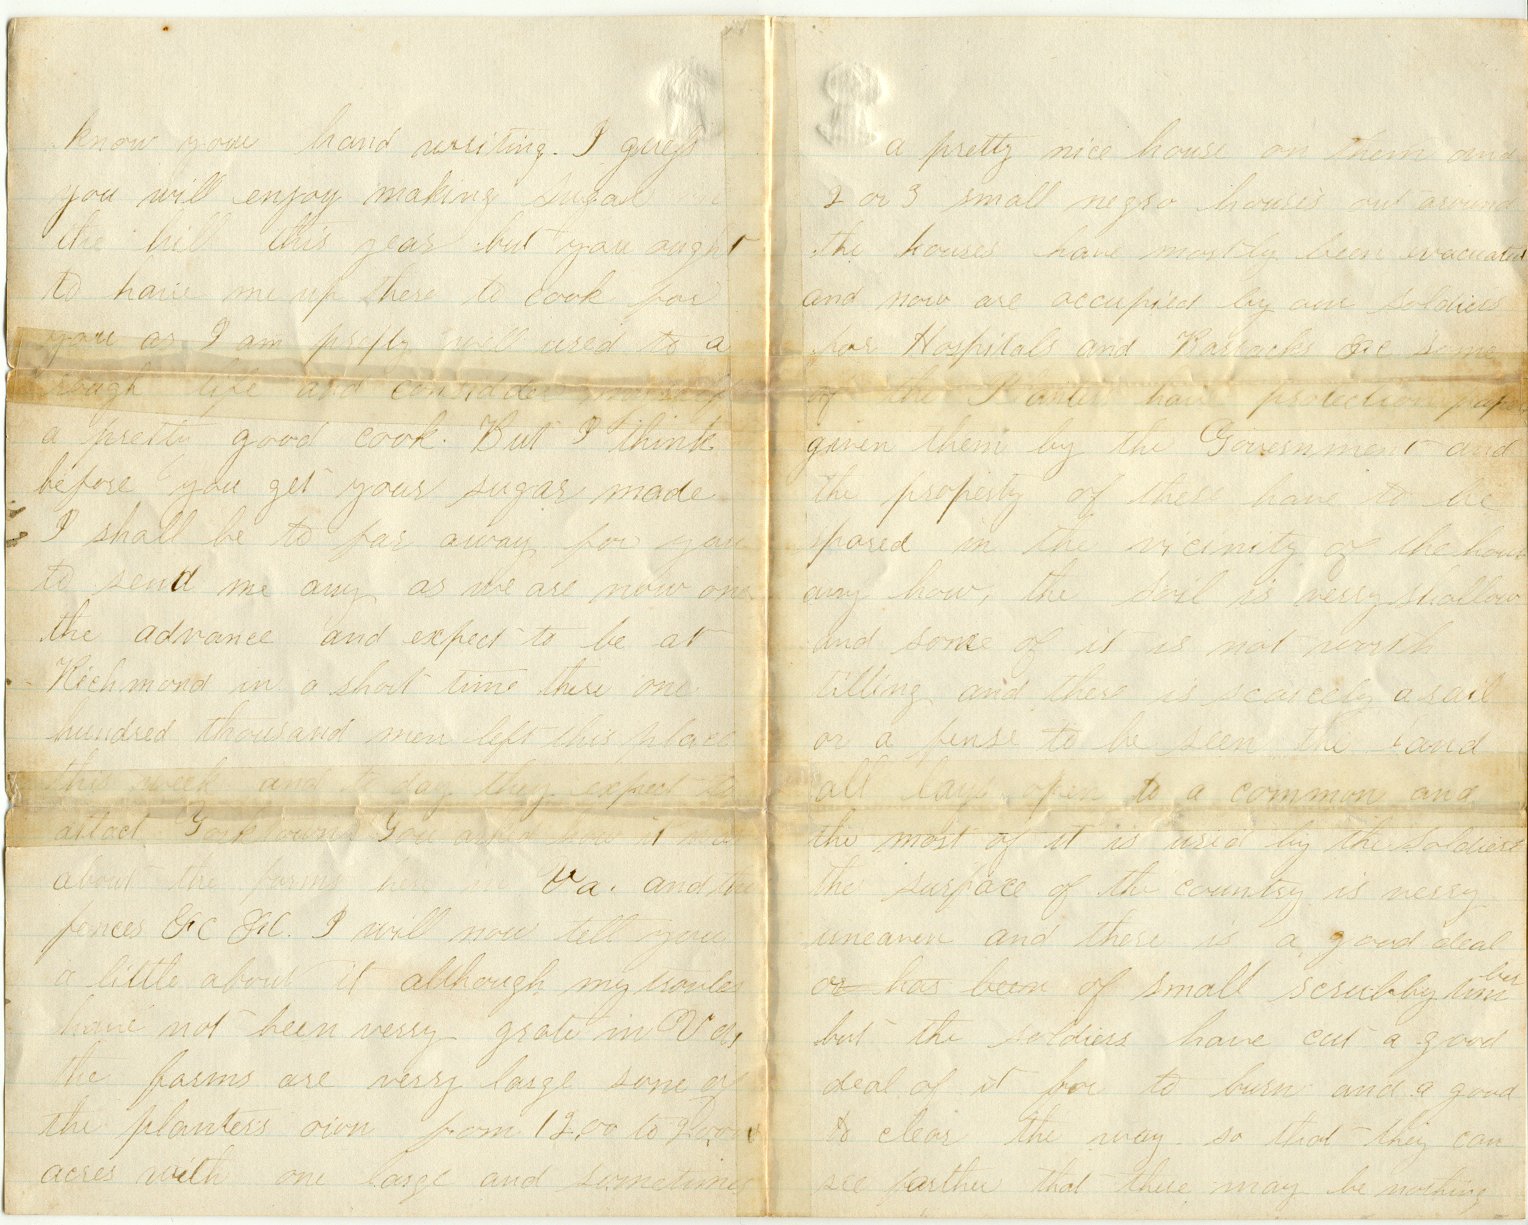 know your hand writing. I guess
you will enjoy making sugar in
the hill this year but you ought
to have me up there to cook for
you as I am prifty well used to a
rough life and considder myself
a pretty good cook. But I think
before you get your sugar made
I shall be to far away for you
to send me any as we are now one
the advance and expect to be at
Richmond in a short time there one
hundred thousand men left this place
this week and to day they expect to
attact Yorktown. You asked how it was
about the farms here in Va. and the
fences &c &c. I will now tell you
a little about it although my travles
have not been verry grate in Va,
the farms are verry large some of
the planters own from 12,00 to 2,000
acres with one large and sometimes
a pretty nice house on them and
2 or 3 small negro houses out around
the houses have mostly been evacuated
and now are occupied by our soldiers
for Hospitals and Barracks &c some
of the Planters have protection papers
given them by the Government and
the property of these have to be
spared in the vicinity of the house
any how, the soil is verry shallow
and some of it is not worth
tilling and there is scarcely a rail
or a fense to be seen the land
all lays open to a common and
the most of it is used by the soldiers
the surface of the country is verry
uneaven and there is a good deal
or has been of small scrubby timber
but the soldiers have cut a good
deal of it for to burn and a good
to clear the way so that they can
see farther that there may be nothing